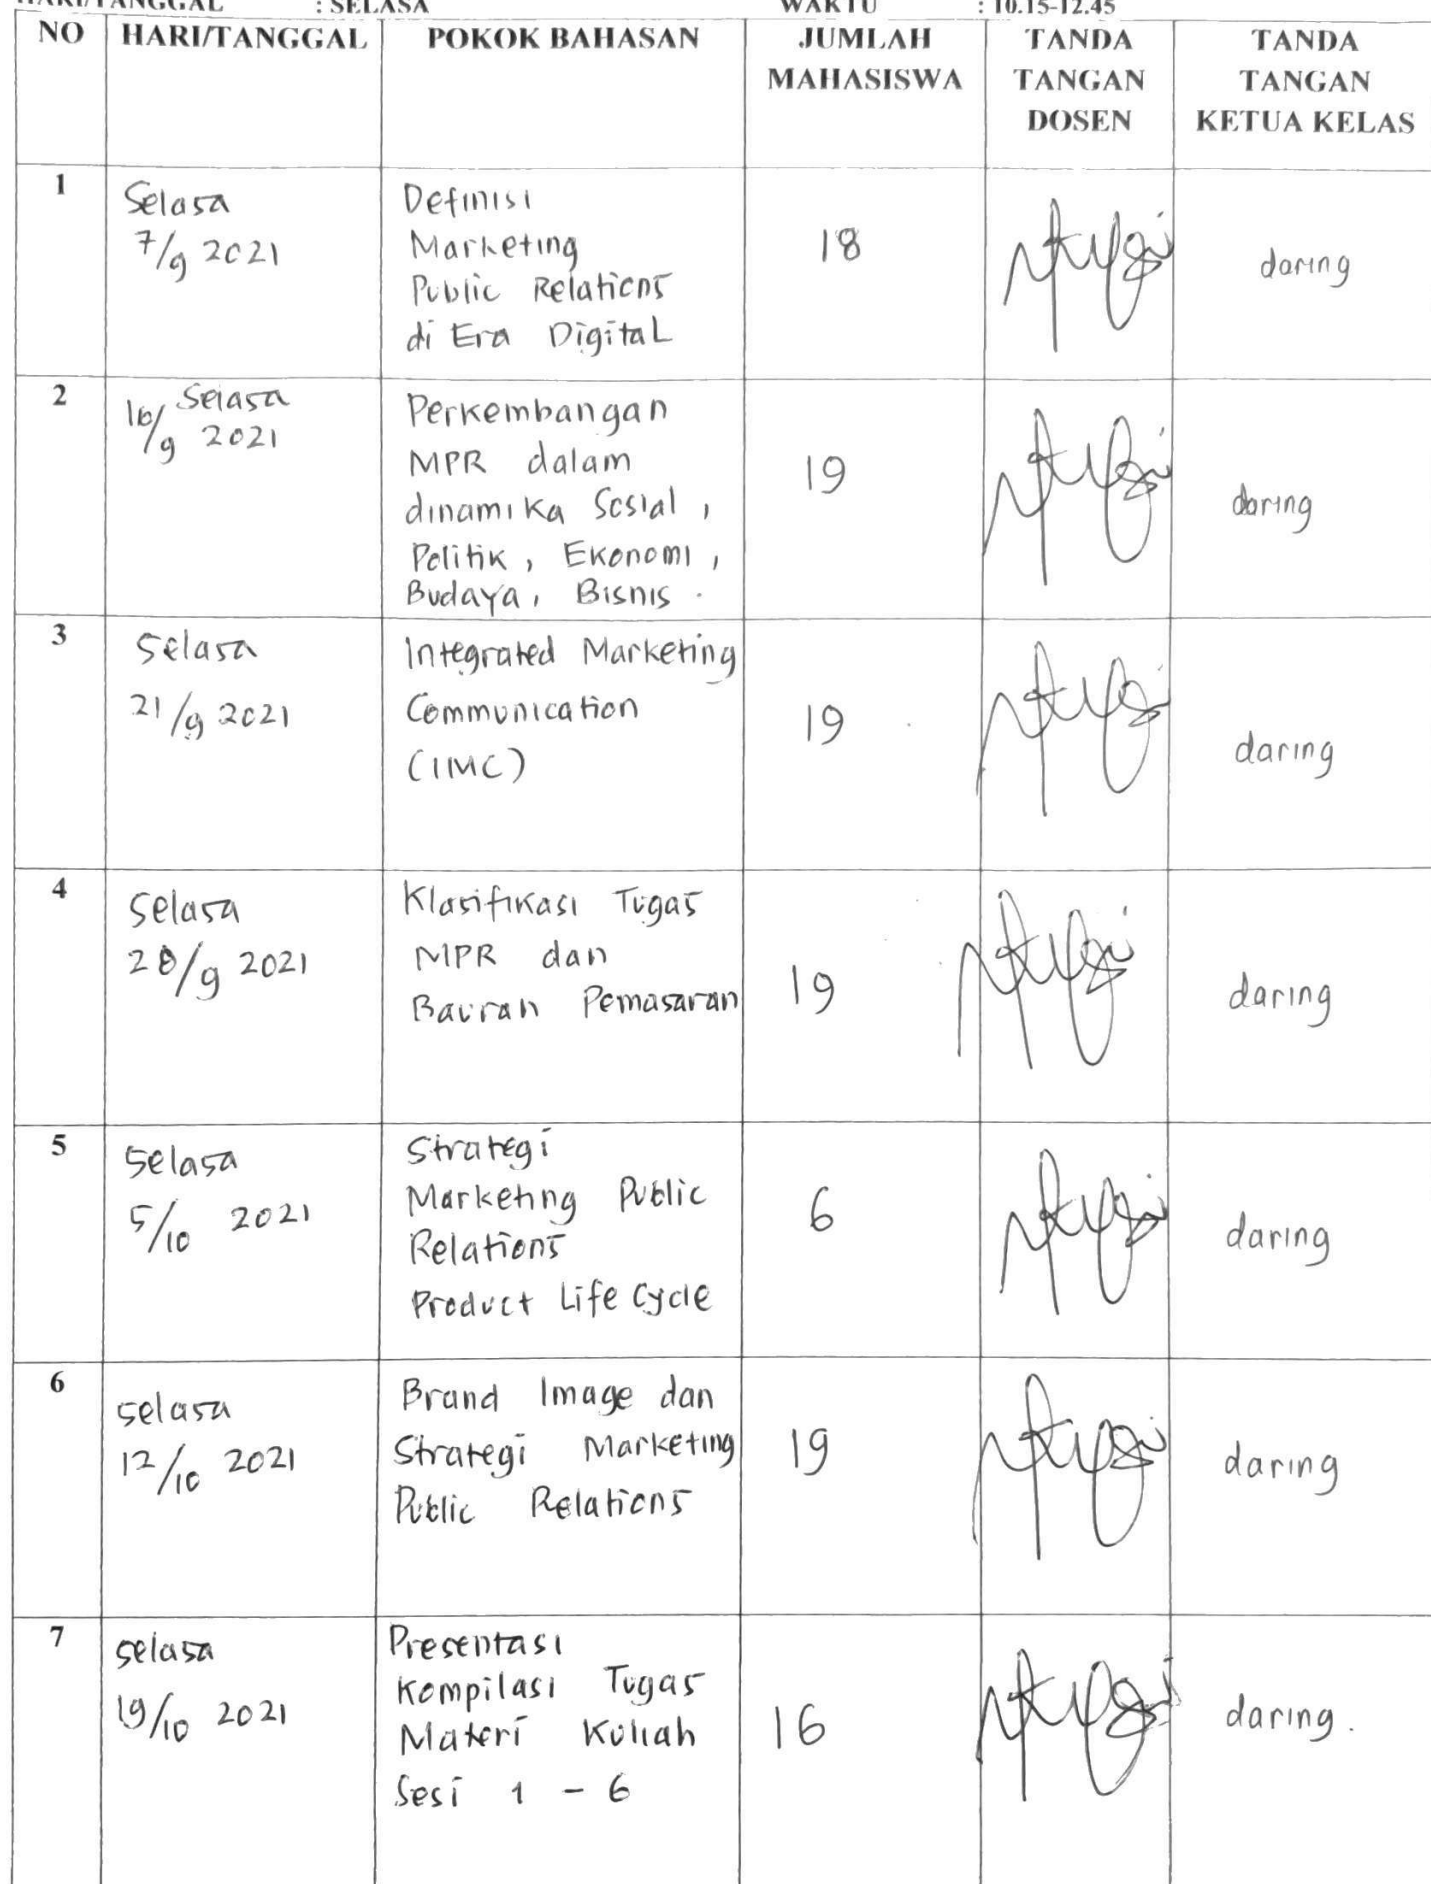 HARI/TANGGAL : SELASA WAKTU : 10.15-12.45
NO HARI/TANGGAL POKOK BAHASAN JUMLAH MAHASISWA TANDA TANGAN DOSEN TANDA TANGAN KETUA KELAS
1
Selasa
7/9 2021
Definisi
Marketing
Public Relations
di Era Digital
18
daring
2
Selasa
16/9 2021
Perkembangan
MPR dalam
dinamika Sosial,
Politik, Ekonomi,
Budaya, Bisnis.
19
daring
3
Selasa
21/9 2021
Integrated Marketing
Communication
(IMC)
19
daring
4
Selasa
28/9 2021
Klasifikasi Tugas
MPR dan
Bauran Pemasaran
19
daring
5
Selasa
5/10 2021
Strategi
Marketing Public
Relations
Product Life Cycle
6
daring
6
selasa
12/10 2021
Brand Image dan
Strategi Marketing
Public Relations
19
daring
7
selasa
19/10 2021
Presentasi
Kompilasi Tugas
Materi Kuliah
Sesi 1 - 6
16
daring.